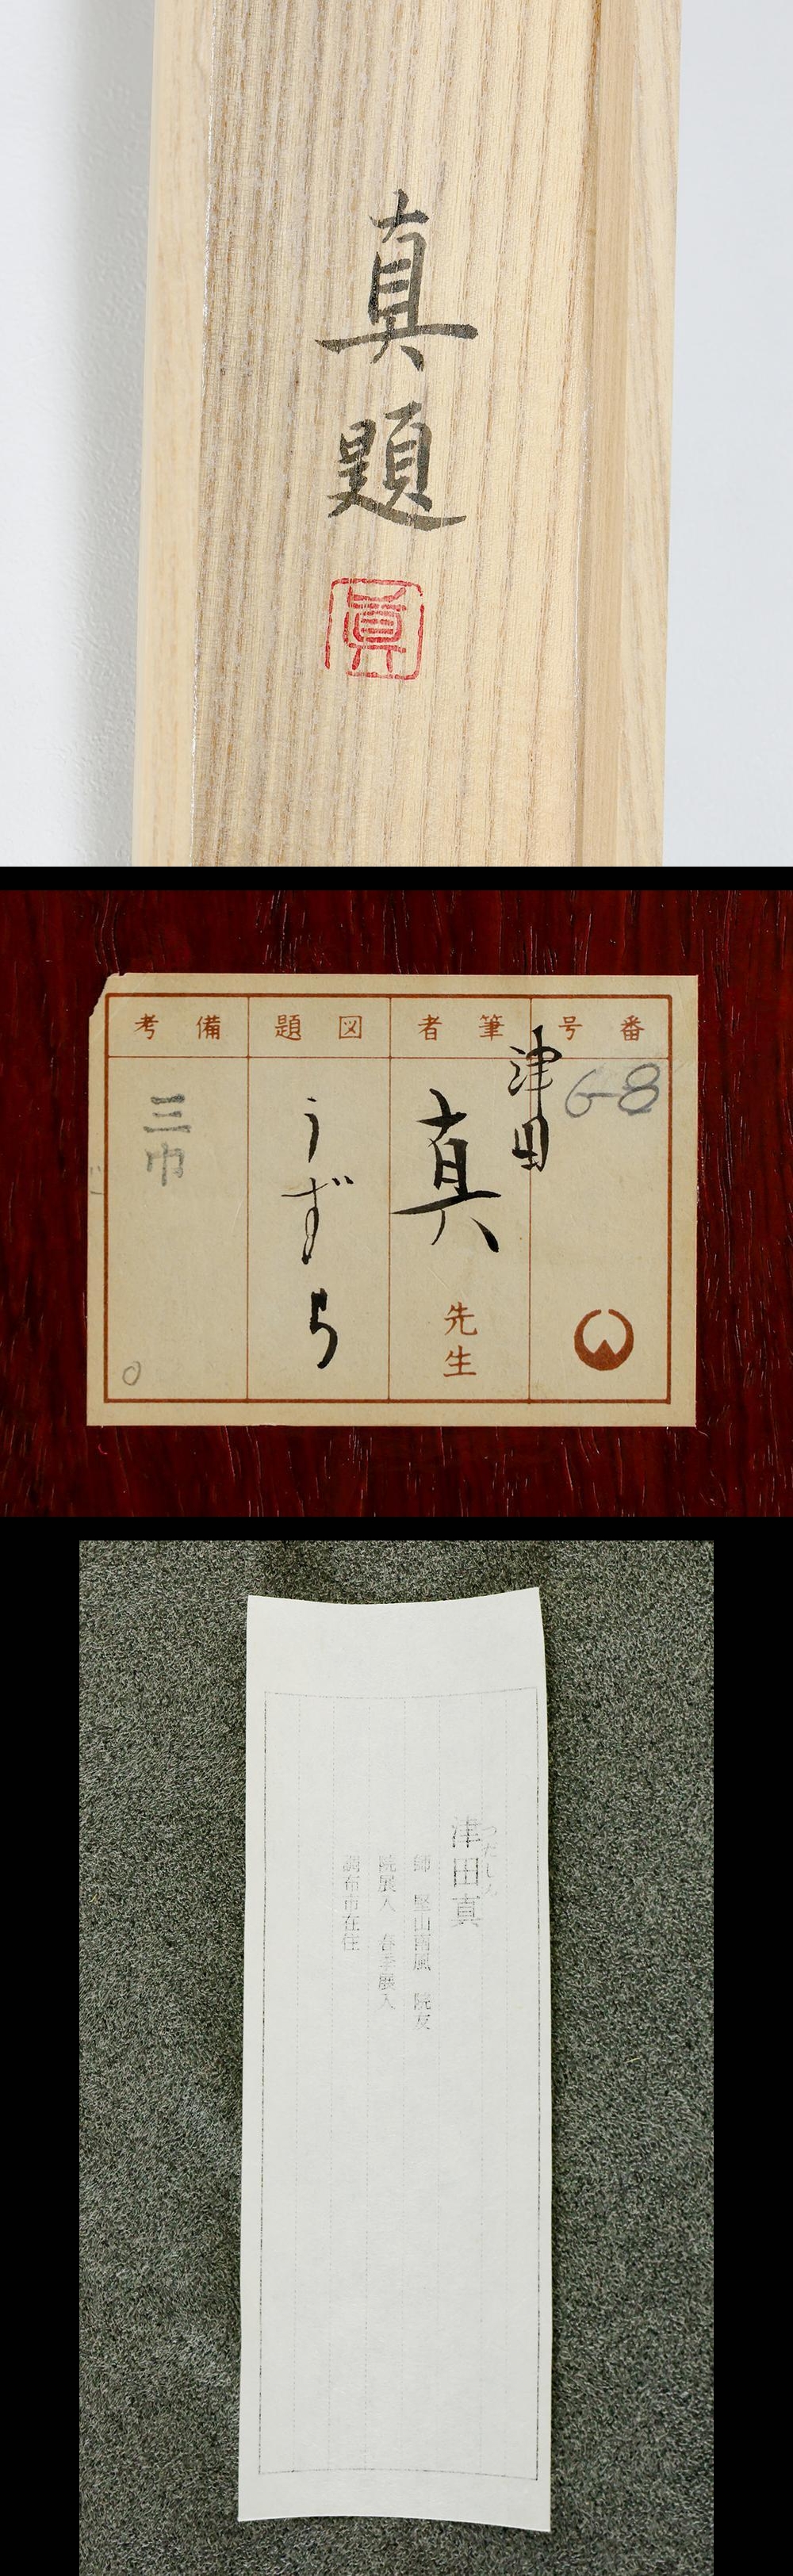 真題
眞
番号
6-8
筆者
津田
真
先生
図題
うずら
備考
三巾
津田真
師 堅山南風 院友
院展入 春季展入
調布市在住